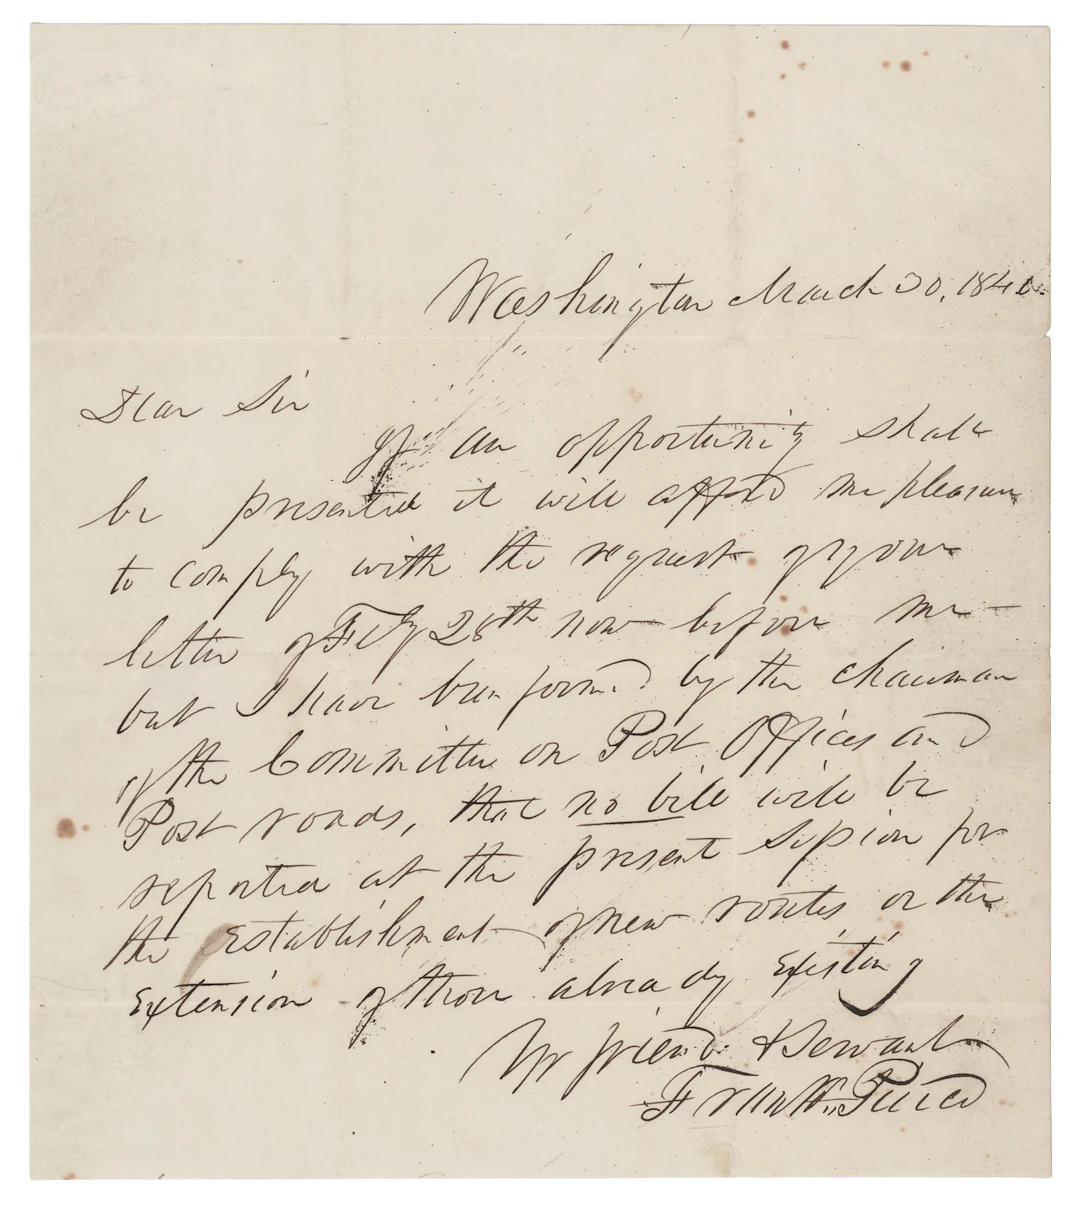 Washington March 30, 1840.
Dear Sir
If an opportunity shall
be presented it will afford me pleasure
to comply with the request of your
letter of Feby 28th now before me —
but I have been formed by the chairman
of the Committee on Post Offices and
Post roads, that no bill will be
reported at the present session for
the establishment of new routes or the
extension of those already existing
Yr friend & Servant
Frank. Pierce